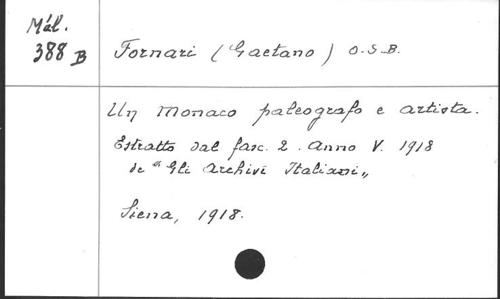 Mál.
388 B
Fornari (Gaetano) O.S.B.
Un monaco paleografo e artista.
Estratto dal fasc. 2. Anno V. 1918
de "Gli Archivi Italiani„
Siena, 1918.